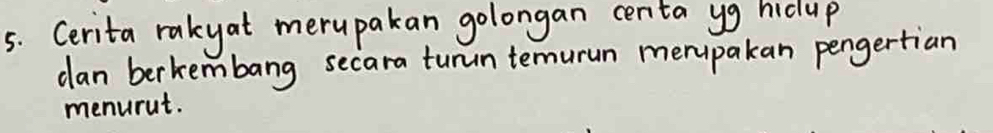 5. Cerita rakyat merupakan golongan cerita yg hidup
dan berkembang secara turun temurun merupakan pengertian
menurut.